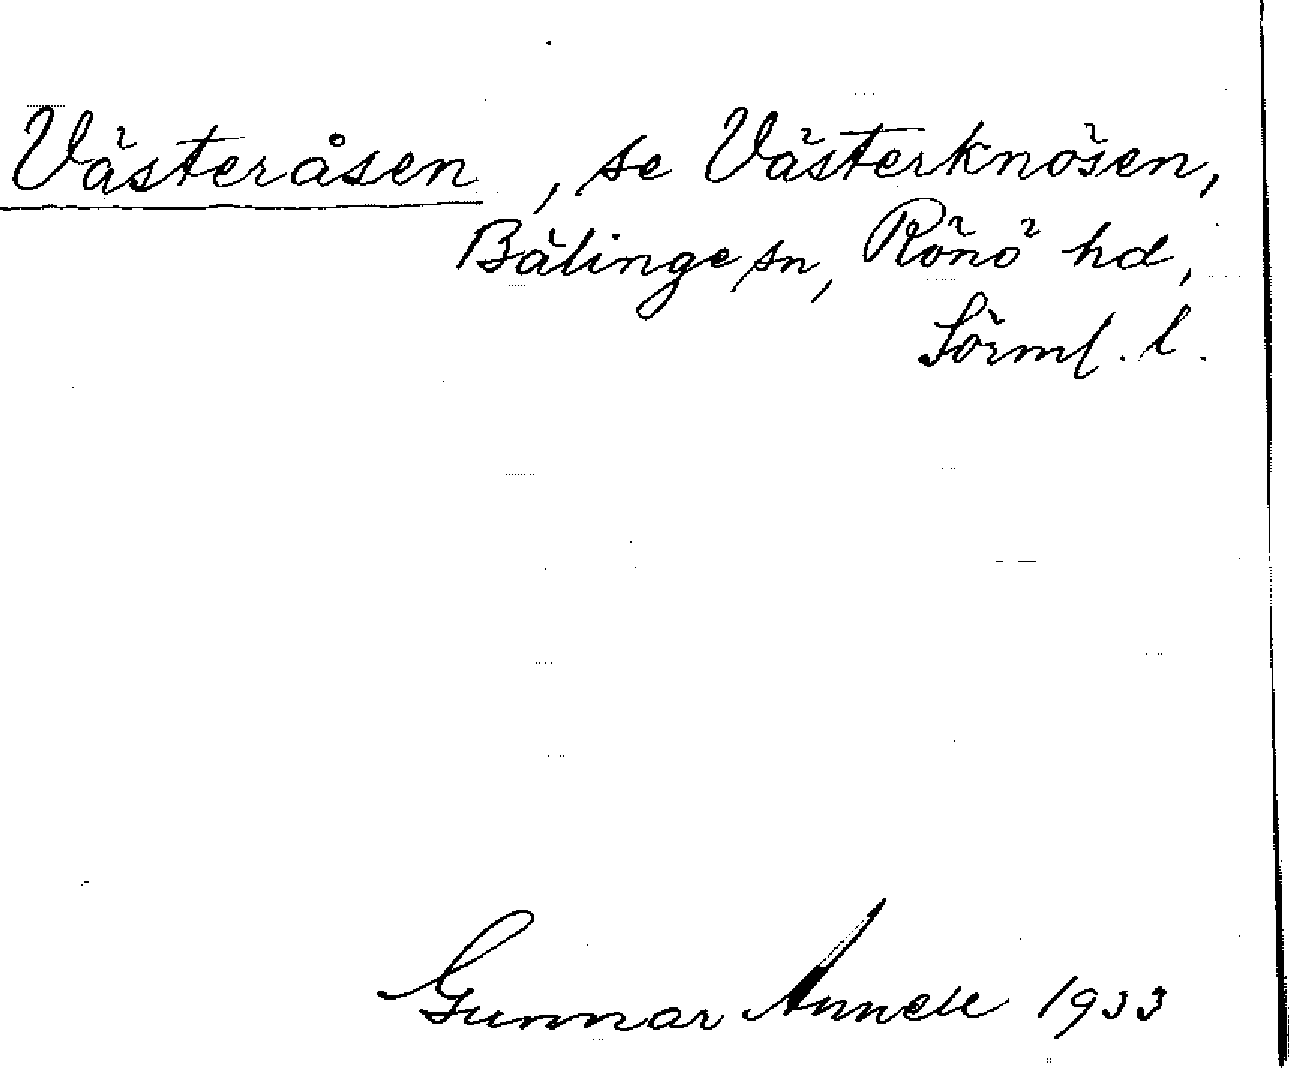 Västeråsen, se Västerknösen,
Bälinge sn, Rönö hd,
Sörml. l.
Gunnar Annell 1933